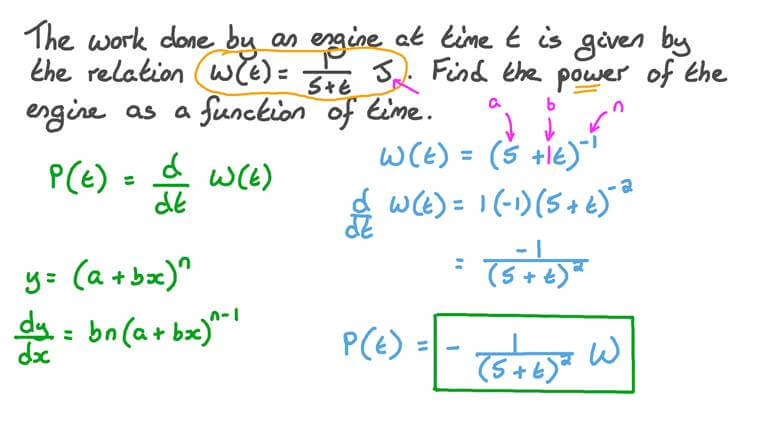 The work done by an engine at time t is given by
the relation W(t) = 1/(5+t) J. Find the power of the
engine as a function of time.
a b n
P(t) = d/dt W(t)
W(t) = (5 + 1t)^-1
d/dt W(t) = 1(-1)(5 + t)^-2
= -1/(5 + t)^2
y = (a + bx)^n
dy/dx = bn(a + bx)^n-1
P(t) = - 1/(5 + t)^2 W